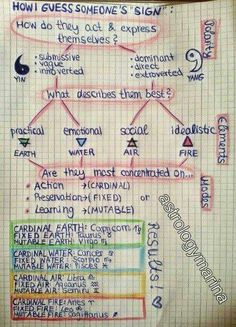 HOW I GUESS SOMEONE'S "SIGN":
HOW do they act & express themselves?
Polarity
• submissive
• vague
• introverted
YIN
• dominant
• direct
• extroverted
YANG
What describes them best?
Elements
practical emotional social idealistic
EARTH WATER AIR FIRE
Are they most concentrated on...
Modes
• Action → (CARDINAL)
• Reservation → (FIXED) or
• Learning → (MUTABLE)
astrologymarina
RESULTS!
CARDINAL EARTH: Capricorn
FIXED EARTH: Taurus
MUTABLE EARTH: Virgo
CARDINAL WATER: Cancer
FIXED WATER: Scorpio
MUTABLE WATER: Pisces
CARDINAL AIR: Libra
FIXED AIR: Aquarius
MUTABLE AIR: Gemini
CARDINAL FIRE: Aries
FIXED FIRE: Leo
MUTABLE FIRE: Sagittarius